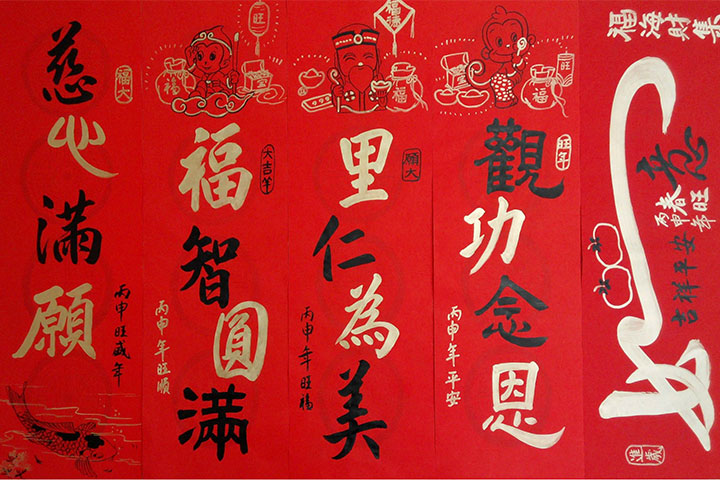 慈心滿願
福大
丙申旺盛年
旺
福
福智圓滿
大吉羊
丙申年旺順
福
里仁為美
願大
丙申年旺福
旺
福
觀功念恩
旺年
丙申年平安
福海財集
意
春旺
丙申年
吉祥平安